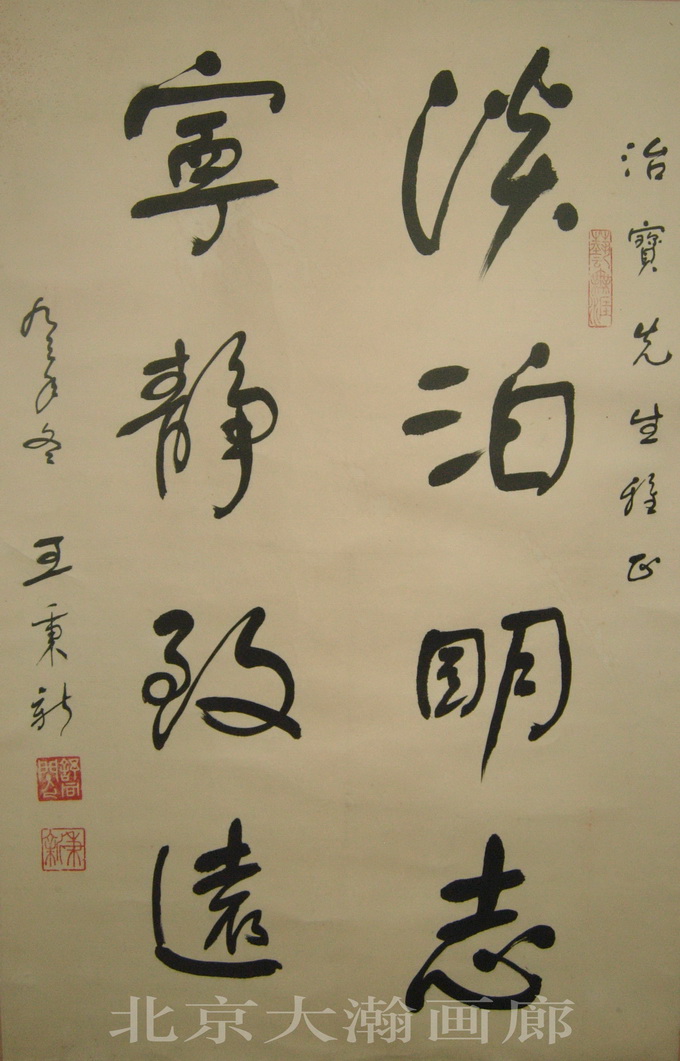 治寶先生雅正
淡泊明志
寧靜致遠
九三年冬 王秉新
秉新
北京大瀚画廊